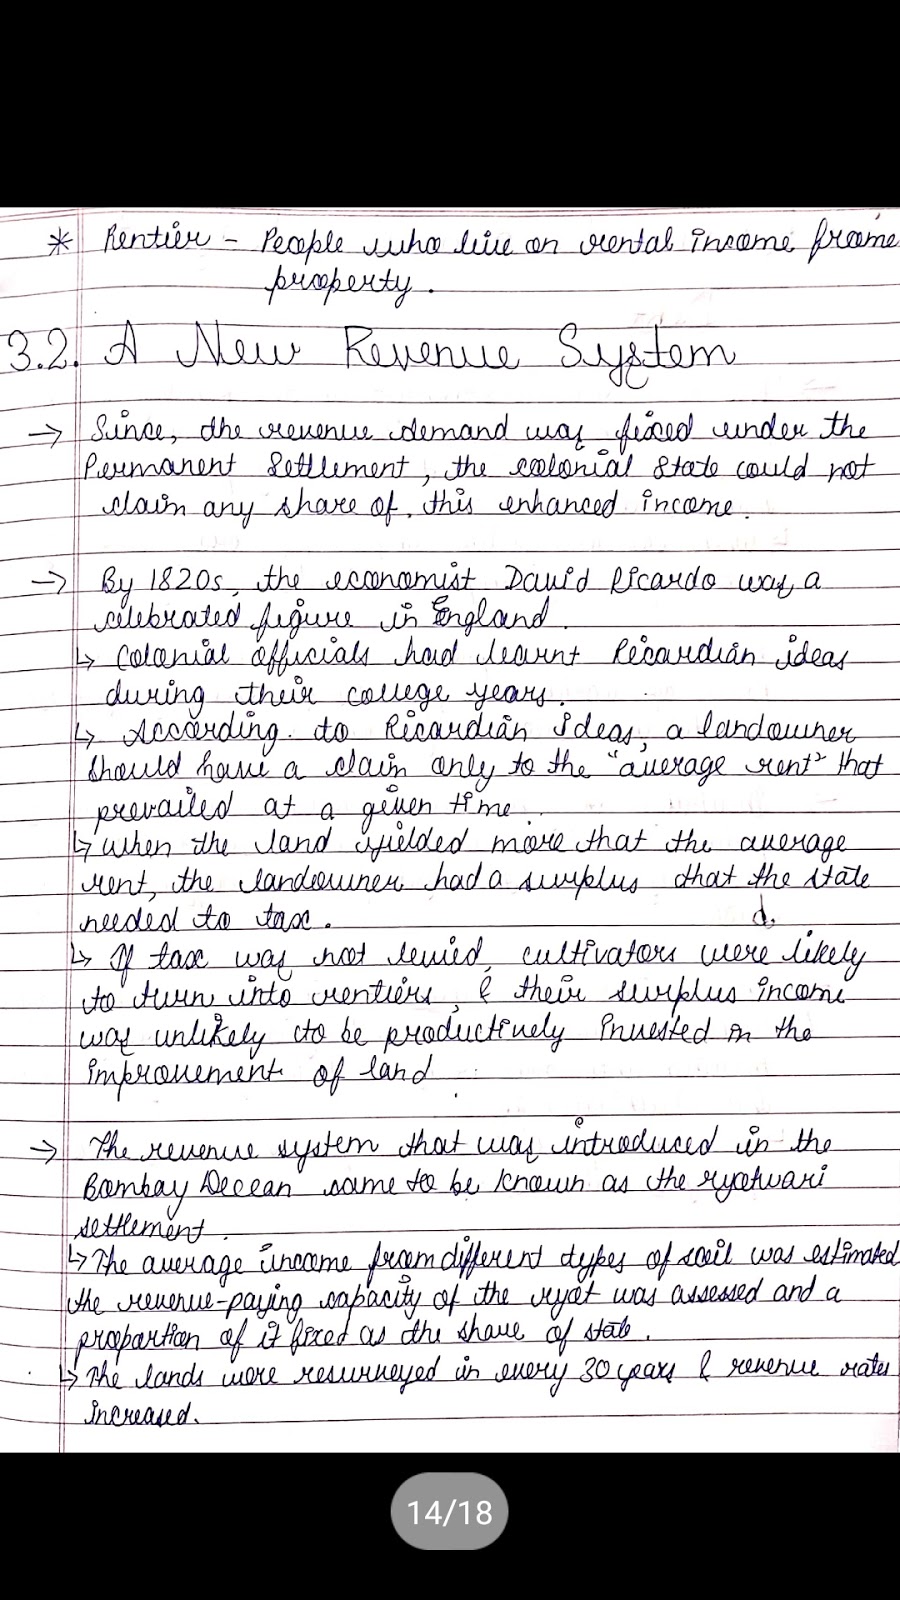 * Rentier - People who live on rental income frome
property.
3.2. A New Revenue System
→ Since, the revenue demand was fixed under the
Permanent Settlement, the colonial State could not
claim any share of this enhanced income.
→ By 1820s, the economist David Ricardo was a
celebrated figure in England.
↳ Colonial officials had learnt Ricardian ideas
during their college years.
↳ According to Ricardian Ideas, a landowner
should have a claim only to the "average rent" that
prevailed at a given time.
↳ When the land yielded more that the average
rent, the landowner had a surplus that the state
needed to tax.
↳ If tax was not levied, cultivators were likely
to turn into rentiers, & their surplus income
was unlikely to be productively invested in the
improvement of land
→ The revenue system that was introduced in the
Bombay Deccan came to be known as the ryotwari
settlement.
↳ The average income from different types of soil was estimated
the revenue-paying capacity of the ryot was assessed and a
proportion of it fixed as the share of state.
↳ The lands were resurveyed in every 30 years & revenue rates
increased.
14/18